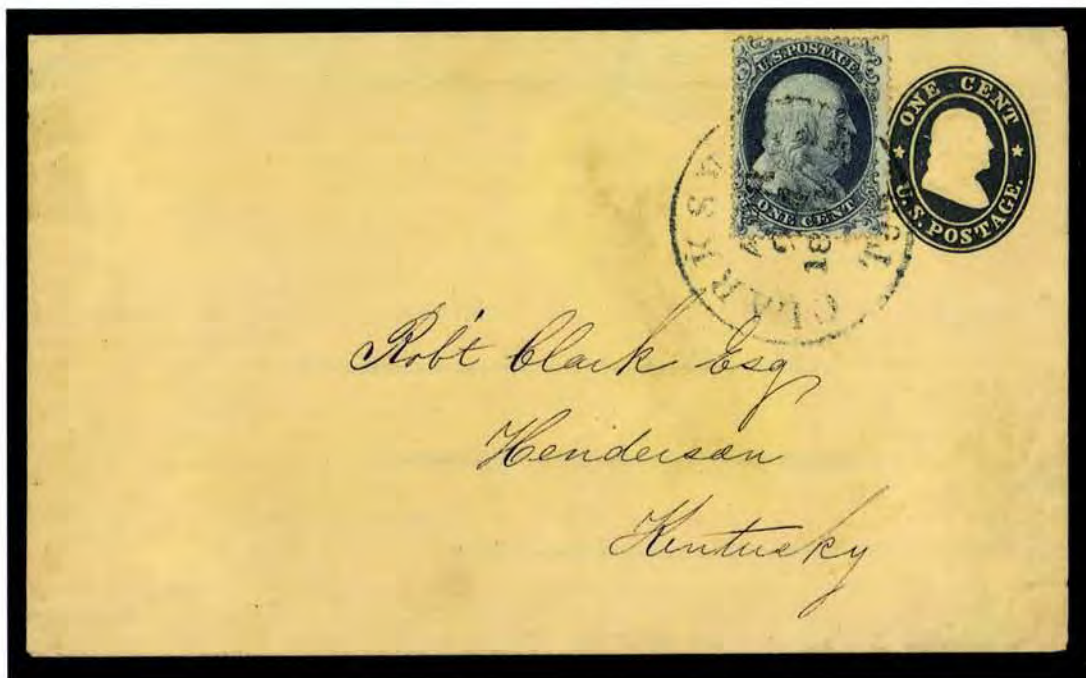 U.S. POSTAGE
ONE CENT
ONE CENT
U.S. POSTAGE.
CLARKS
Rob't Clark Esq
Henderson
Kentucky